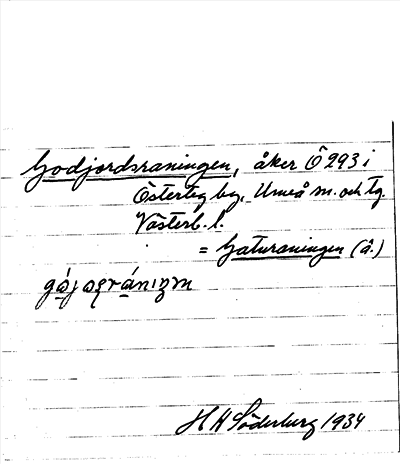 Godjordsraningen, åker Ö 293 i
Östertegby, Umeå m. och tg
Västerb. l.
= Gaturaningen (å.)
H H Söderberg 1934